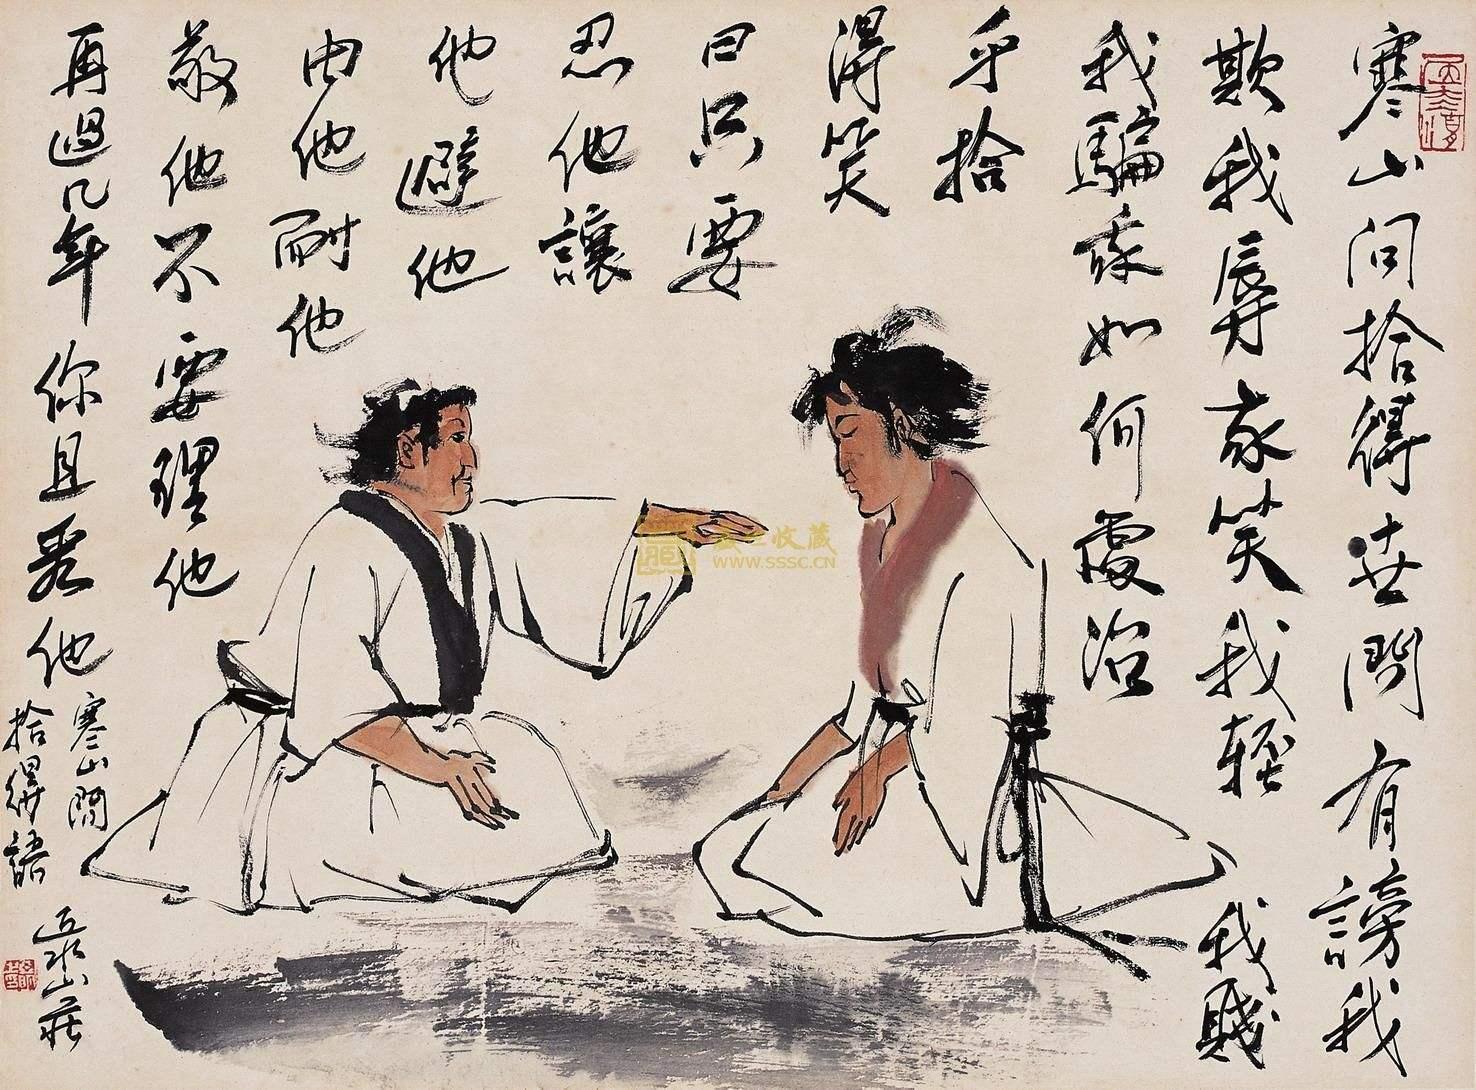 寒山問拾得世間有謗我
欺我辱我笑我輕我賤
我騙我如何處治
乎拾
得笑
曰只要
忍他讓
他避他
由他耐他
敬他不要理他
再過几年你且看他
寒山問
拾得語
山莊
盛世收藏
WWW.SSSC.CN